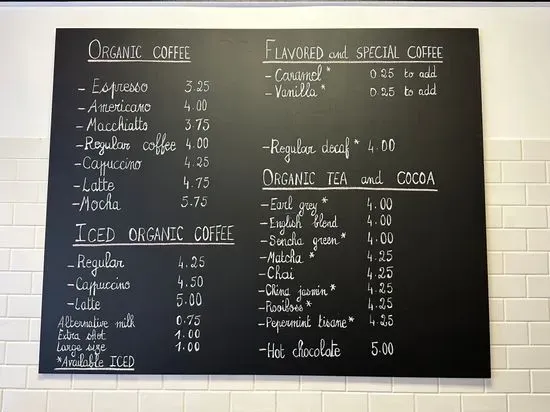 ORGANIC COFFEE
- Espresso 3.25
- Americano 4.00
- Macchiatto 3.75
- Regular coffee 4.00
- Cappuccino 4.25
- Latte 4.75
- Mocha 5.75
ICED ORGANIC COFFEE
- Regular 4.25
- Cappuccino 4.50
- Latte 5.00
Alternative milk 0.75
Extra shot 1.00
Large size 1.00
*Available ICED
FLAVORED and SPECIAL COFFEE
- Caramel* 0.25 to add
- Vanilla* 0.25 to add
- Regular decaf* 4.00
ORGANIC TEA and COCOA
- Earl grey* 4.00
- English blend 4.00
- Sencha green* 4.00
- Matcha * 4.25
- Chai 4.25
- China jasmin* 4.25
- Rooibos* 4.25
- Pepermint tisane* 4.25
- Hot chocolate 5.00